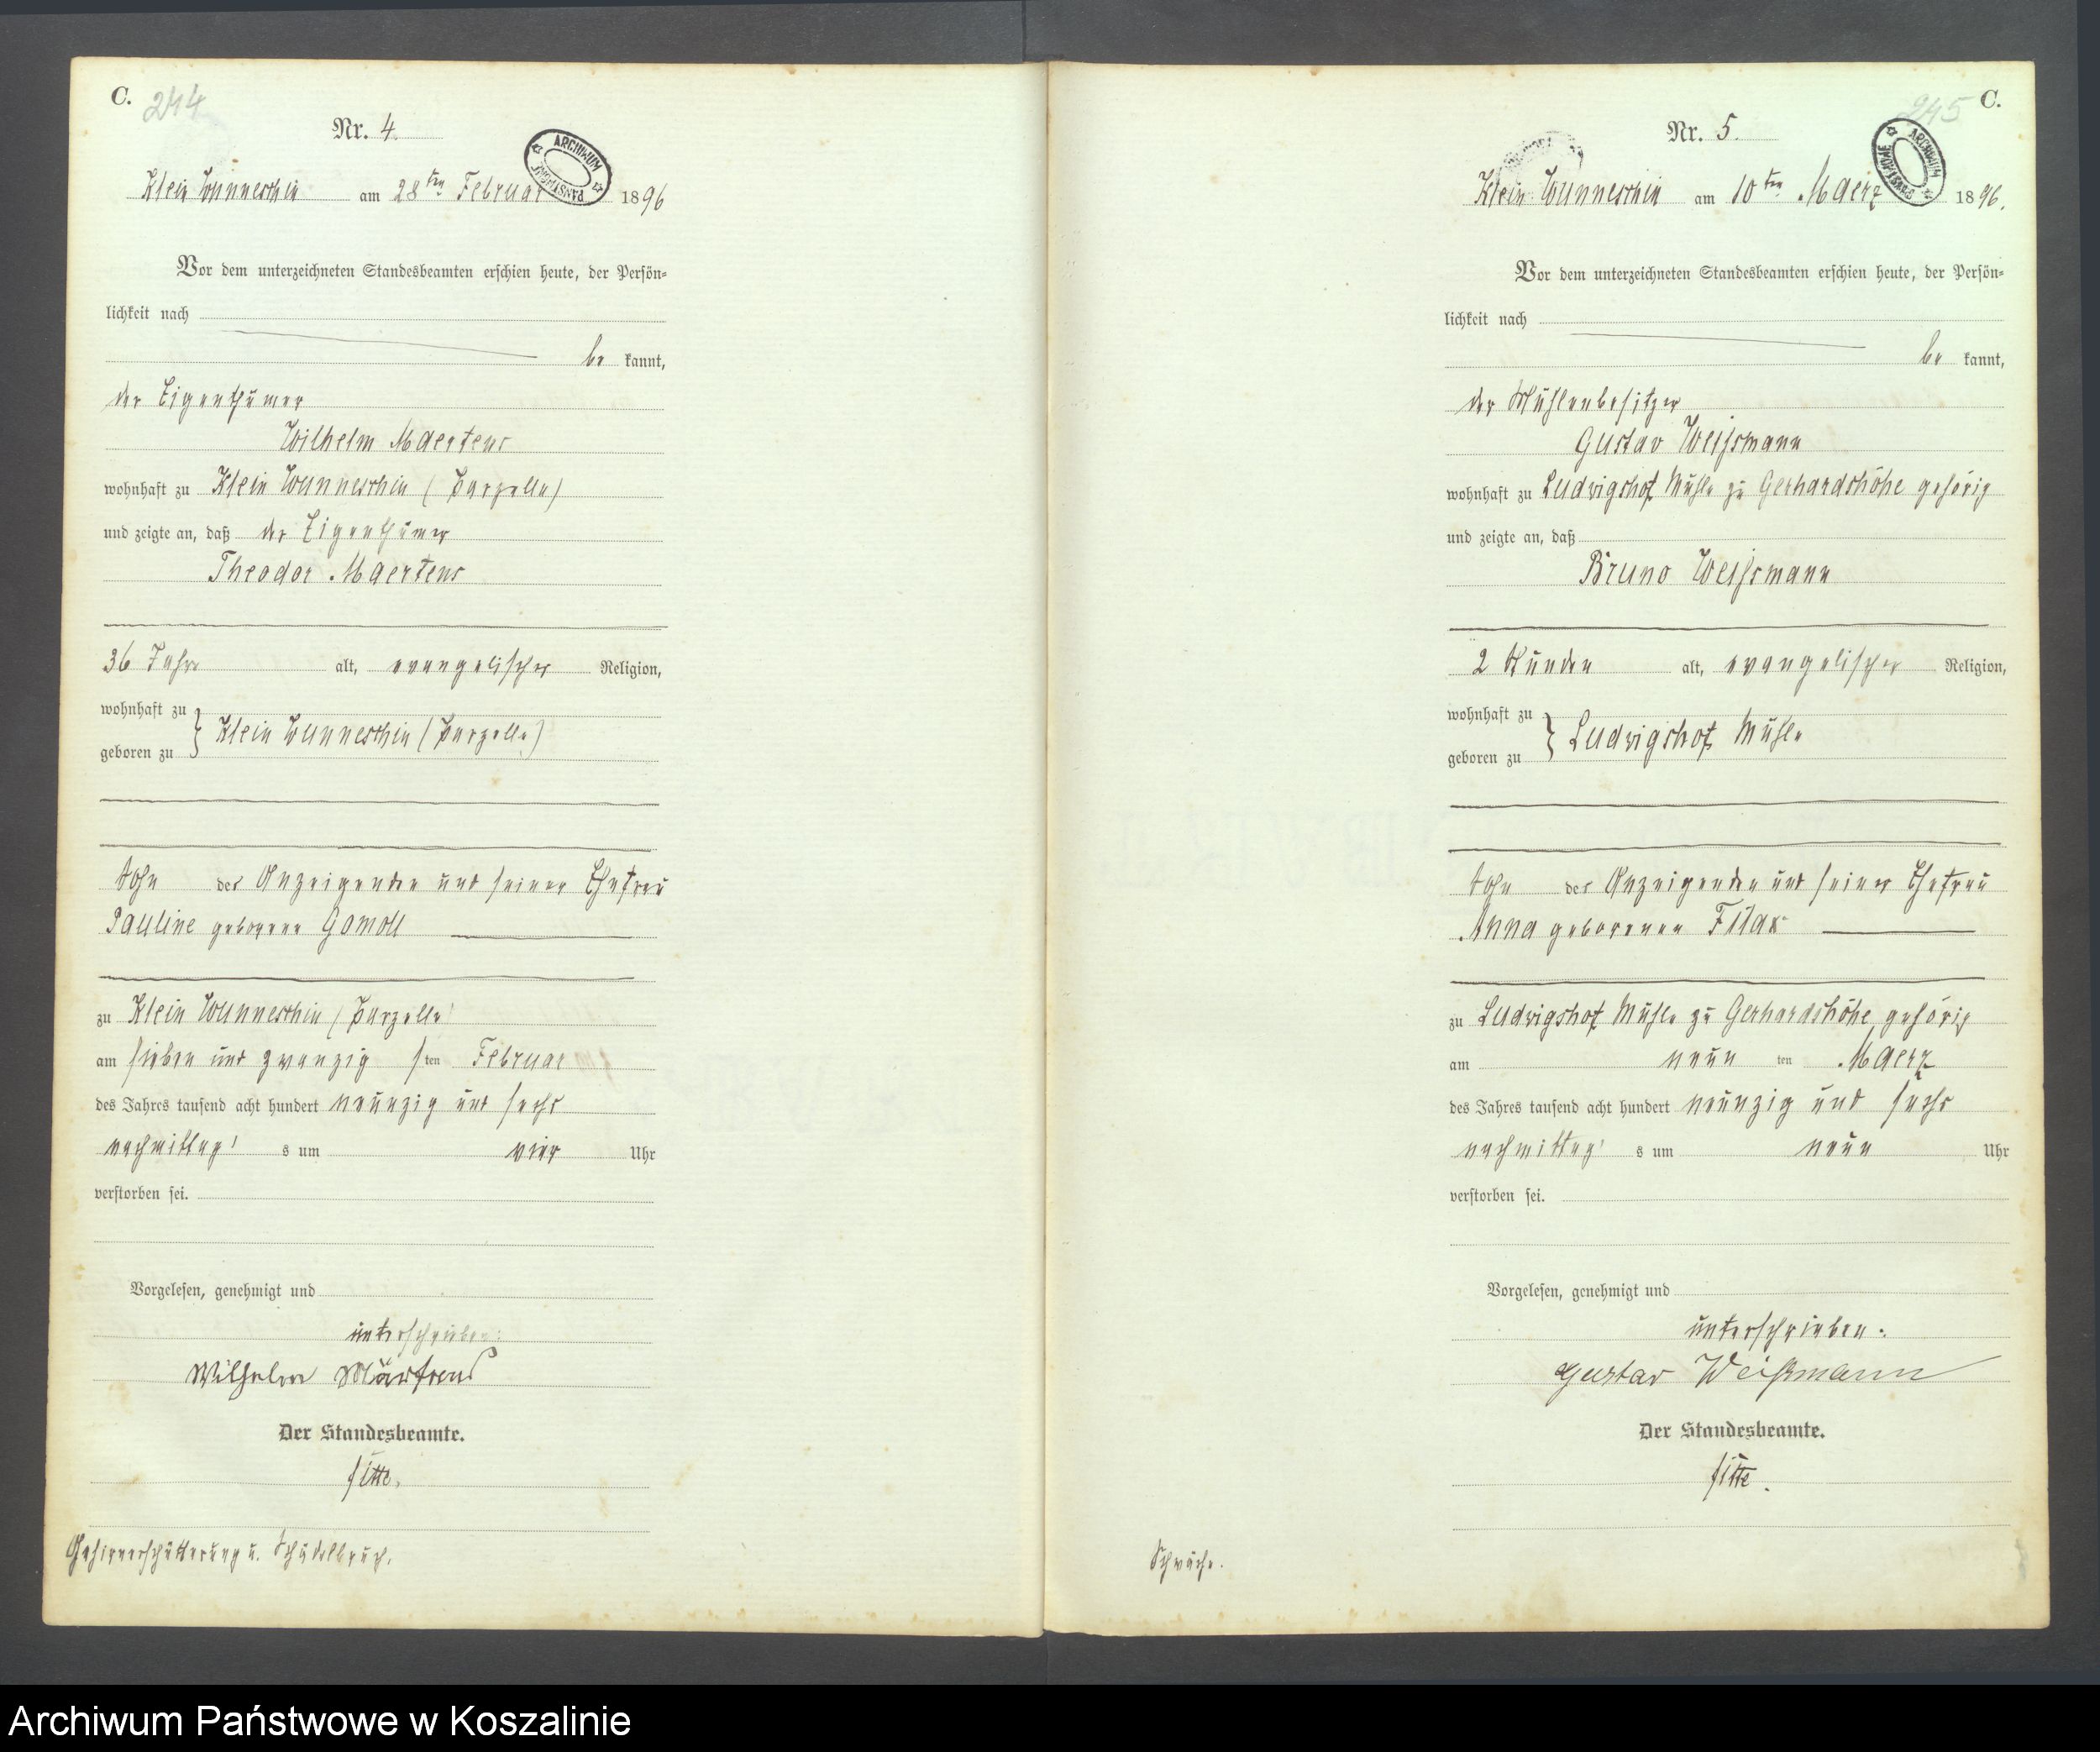 C.
244
Nr. 4.
ARCHIWUM PAŃSTWOWE
Klein Wunneschin am 28ten Februar 1896
Vor dem unterzeichneten Standesbeamten erschien heute, der Persön-
lichkeit nach
be kannt,
der Eigenthümer
Wilhelm Maertens
wohnhaft zu Klein Wunneschin (Parzelle)
und zeigte an, daß der Eigenthümer
Theodor Maertens
36 Jahre alt, evangelischer Religion,
wohnhaft zu
geboren zu } Klein Wunneschin (Parzelle)
Sohn des Anzeigenden und seiner Ehefrau
Pauline geborene Gomoll
zu Klein Wunneschin (Parzelle)
am sieben und zwanzig sten Februar
des Jahres tausend acht hundert neunzig und sechs
nachmittag s um vier Uhr
verstorben sei.
Vorgelesen, genehmigt und
unterschrieben:
Wilhelm Märtens
Der Standesbeamte.
Sitte.
Gehirnerschütterung u. Schädelbruch.
C.
245
Nr. 5.
ARCHIWUM PAŃSTWOWE
Klein Wunneschin am 10ten Maerz 1896.
Vor dem unterzeichneten Standesbeamten erschien heute, der Persön-
lichkeit nach
be kannt,
der Mühlenbesitzer
Gustav Weissmann
wohnhaft zu Ludwigshof Mühle zu Gerhardshöhe gehörig
und zeigte an, daß
Bruno Weissmann
2 Stunden alt, evangelischer Religion,
wohnhaft zu
geboren zu } Ludwigshof Mühle
Sohn des Anzeigenden und seiner Ehefrau
Anna geborenen
zu Ludwigshof Mühle zu Gerhardshöhe gehörig
am neun ten Maerz
des Jahres tausend acht hundert neunzig und sechs
nachmittag s um neun Uhr
verstorben sei.
Vorgelesen, genehmigt und
unterschrieben.
Gustav Weißmann
Der Standesbeamte.
Sitte.
Schwäche.
Archiwum Państwowe w Koszalinie